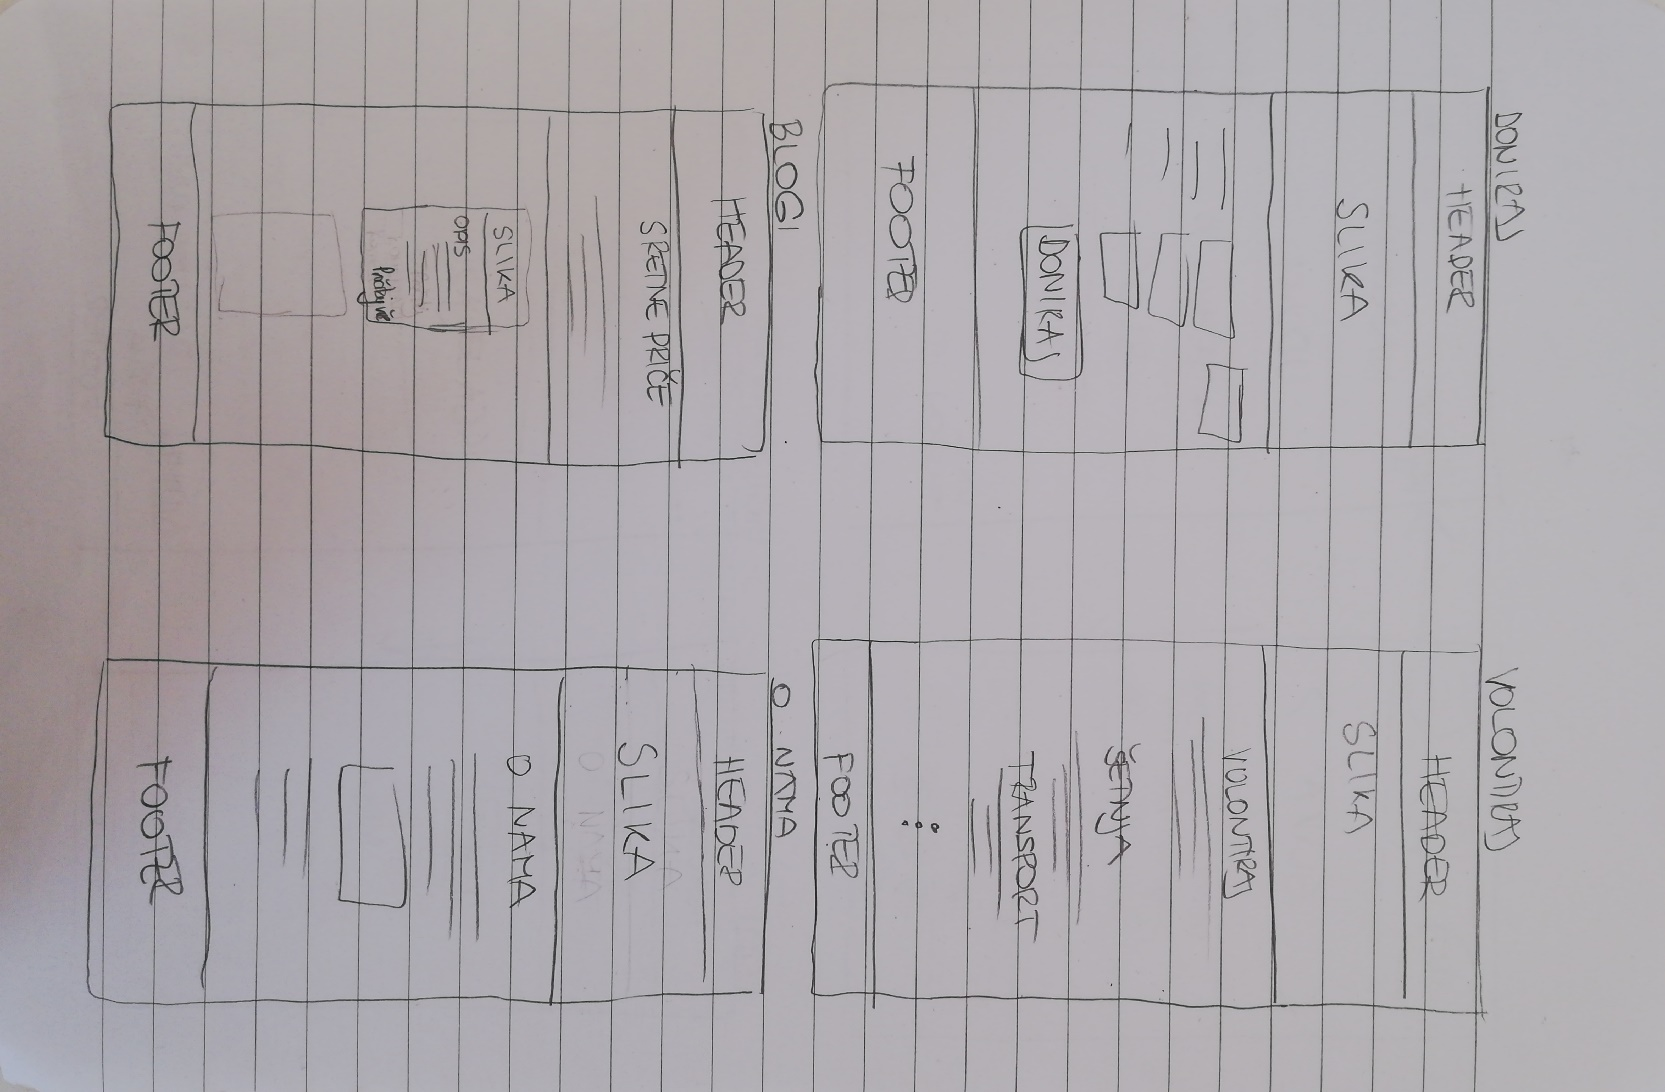 DONIRAJ
HEADER
SLIKA
DONIRAJ
FOOTER
VOLONTIRAJ
HEADER
SLIKA
VOLONTIRAJ
ŠETNJA
TRANSPORT
FOOTER
BLOGI
HEADER
SRETNE PRIČE
SLIKA
OPIS
FOOTER
O NAMA
HEADER
SLIKA
O NAMA
FOOTER